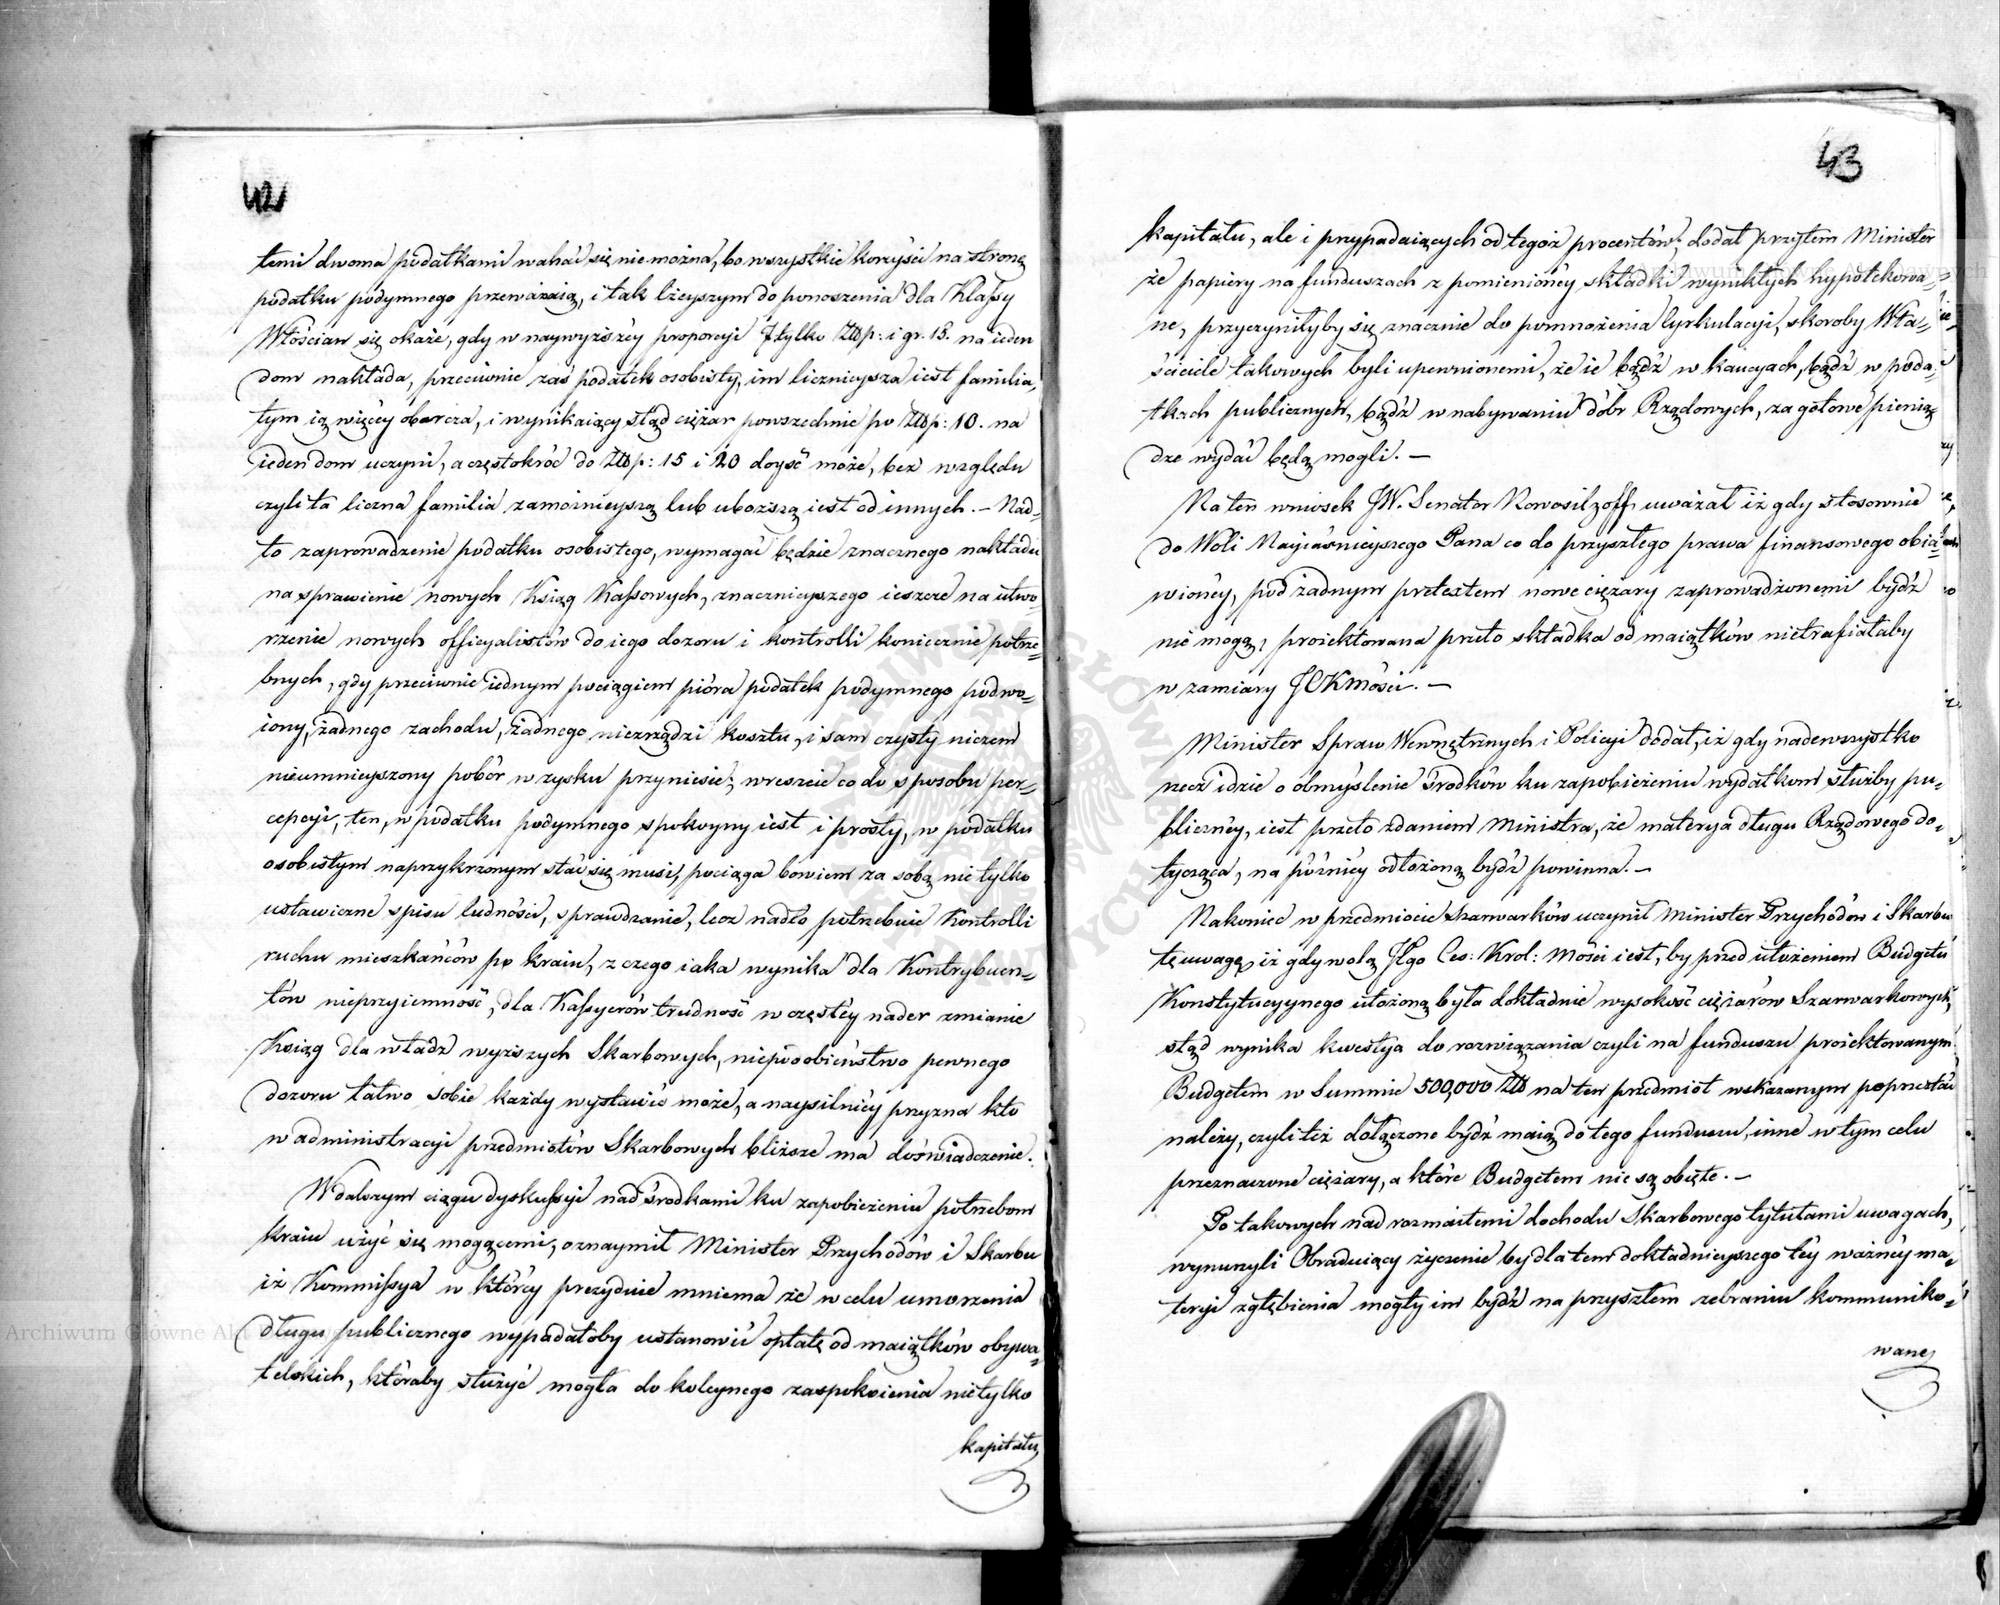 42
temi dwoma podatkami wahać się nie można, bo wszystkie korzyści na stronę
podatku podymnego przeważaią, i tak lżeyszym do ponoszenia dla Klassy
Włościan się okaże, gdy w naywyższéy proporcyi 7 tylko Złłp: i gr. 15. na ieden
dom nakłada, przeciwnie zaś podatek osobisty, im licznieysza iest familia,
tym ią więcéy obarcza, i wynikaiący stąd ciężar powszechnie po Złłp: 10. na
ieden dom uczyni, a częstokroć do Złłp: 15 i 20 doyść może, bez względu
czyli ta liczna familia zamożnieyszą lub uboższą iest od innych. — Nad=
to zaprowadzenie podatku osobistego, wymagać będzie znacznego nakładu
na sprawienie nowych Ksiąg Kassowych, znacznieyszego ieszcze na utwo=
rzenie nowych officyalistów do iego dozoru i kontrolli koniecznie potrze=
bnych, gdy przeciwnie iednym pociągiem pióra podatek podymnego podwo=
iony, żadnego zachodu, żadnego niezrządzi kosztu, i sam czysty niczem
nieumnieyszony pobór w zysku przyniesie; wreszcie co do sposobu per=
cepcyi, ten, w podatku podymnego spokoyny iest i prosty, w podatku
osobistym naprzykrzonym stać się musi, pociąga bowiem za sobą nie tylko
ustawiczne spisu ludności, sprawdzanie, lecz nadto potrzebuie Kontrolli
ruchu mieszkańców po kraiu, z czego iaka wynika dla Kontrybuen=
tów nieprzyiemność, dla Kassyerów trudność w częstéy nader zmianie
Ksiąg dla władz wyższych Skarbowych, niepodobieństwo pewnego
dozoru łatwo sobie każdy wystawić może, a naysilniéy przyzna kto
w administracyi przedmiotów Skarbowych bliższe ma doświadczenie.
W dalszym ciągu dyskussyi nad środkami ku zapobieżeniu potrzebom
kraiu użyć się mogącemi, oznaymił Minister Przychodów i Skarbu
iż Kommissya w któréy prezyduie mniema że w celu umorzenia
długu publicznego wypadałoby ustanowić opłatę od maiątków obywa=
telskich, któraby służyć mogła do koleynego zaspokoienia nietylko
kapitału,
43
kapitału, ale i przypadaiących od tegoż procentów; dodał przytem Minister
że papiery na funduszach z pomienionéy składki wynikłych hypotekowa=
ne, przyczyniłyby się znacznie do pomnożenia Cyrkulacyi, skoroby Wła=
ściciele takowych byli upewnionemi, że ie bądź w kaucyach, bądź w poda=
tkach publicznych, bądź w nabywaniu dóbr Rządowych, za gotowe pienią=
dze wydać będą mogli. —
Na ten wniosek JW. Senator Nowosilzoff uważał iż gdy stosownie
do Woli Nayiaśnieyszego Pana co do przyszłego prawa finansowego obia=
wionéy, pod żadnym pretextem nowe ciężary zaprowadzonemi bydź
nie mogą, proiektowana przeto składka od maiątków nietrafiałaby
w zamiary JCKMości. —
Minister Spraw Wewnętrznych i Policyi dodał, iż gdy nadewszystko
rzecz idzie o obmyślenie środków ku zapobieżeniu wydatkom służby pu=
bliczney, iest przeto zdaniem Ministra, że materya długu Rządowego do=
tycząca, na późniéy odłożoną bydź powinna. —
Nakoniec w przedmiocie Szarwarków uczynił Minister Przychodów i Skarbu
tę uwagę, iż gdy wolą Jego Ces: Krol: Mości iest, by przed ułożeniem Budgetu
Konstytucyynego ułożoną była dokładnie wysokość ciężarów Szarwarkowych,
stąd wynika kwestya do rozwiązania czyli na funduszu proiektowanym
Budgetem w Summie 500,000 Złł na ten przedmiot wskazanym poprzestać
należy, czyli też dołączone bydź maią do tego funduszu, inne w tym celu
przeznaczone ciężary, a które Budgetem nie są obięte. —
Po takowych nad rozmaitemi dochodu Skarbowego tytułami uwagach,
wynurzyli Obraduiący życzenie by dla tem dokładnieyszego téy ważnéy ma=
teryi zgłębienia mogły im bydź na przyszłem zebraniu kommuniko=
wane